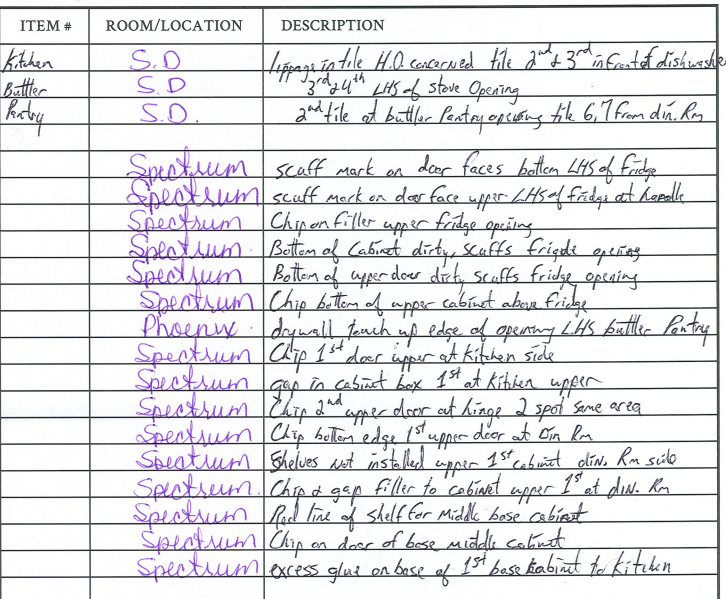 ITEM # ROOM/LOCATION DESCRIPTION
Kitchen S.D lippage in tile H.O. concerned tile 2nd & 3rd in front of dishwasher
Buttler S.D 3rd & 4th LHS of stove Opening
Pantry S.D. 2nd tile at buttler Pantry opening tile 6,7 from din. Rm
Spectrum scuff mark on door faces bottom LHS of fridge
Spectrum scuff mark on door face upper LHS of fridge at handle
Spectrum Chip on filler upper fridge opening
Spectrum Bottom of Cabinet dirty, scuffs frigde opening
Spectrum Bottom of upper door dirty scuffs fridge opening
Spectrum Chip bottom of upper cabinet above fridge
Phoenix drywall touch up edge of opening LHS buttler Pantry
Spectrum Chip 1st door upper at kitchen side
Spectrum gap in cabinet box 1st at kitchen upper
Spectrum Chip 2nd upper door at hinge 2 spot same area
Spectrum Chip bottom edge 1st upper door at Din Rm
Spectrum Shelves not installed upper 1st cabinet din. Rm side
Spectrum. Chip & gap filler to cabinet upper 1st at din. Rm
Spectrum Red line of shelf for middle base cabinet
Spectrum Chip on door of base middle cabinet
Spectrum excess glue on base of 1st base cabinet to kitchen